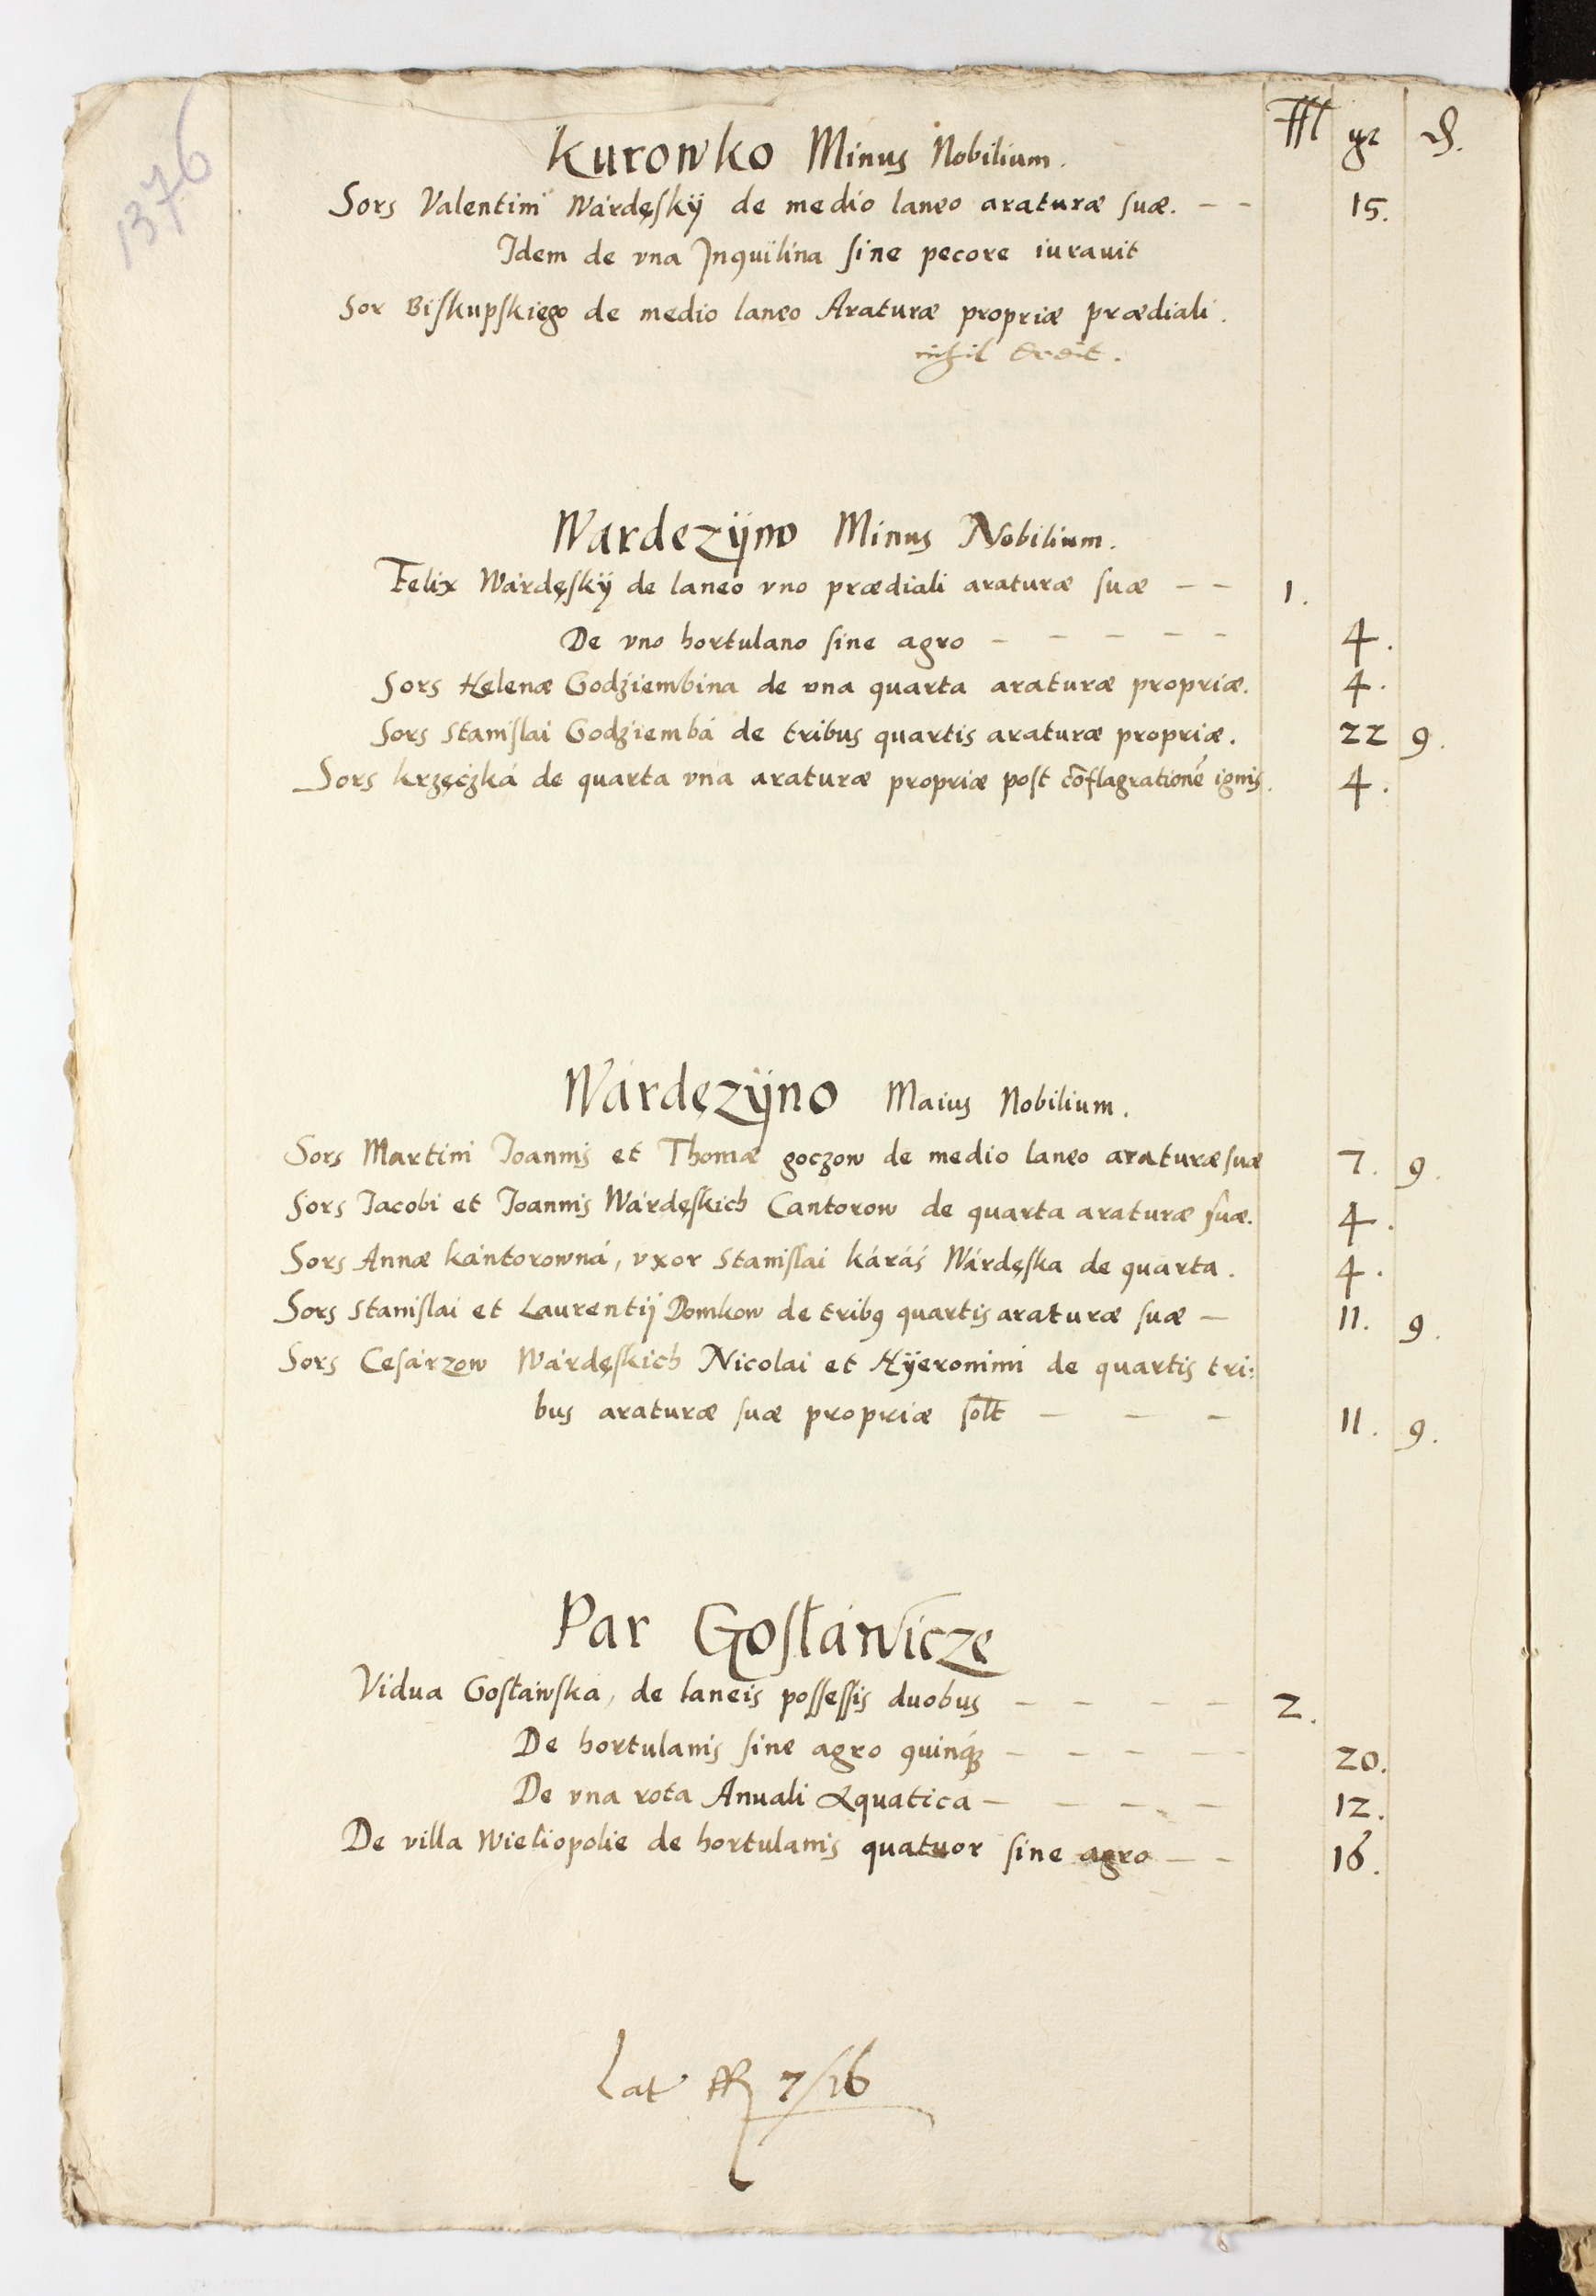 1376
ffl gr d.
Kurowko Minus Nobilium.
Sors Valentini Wárdęskÿ de medio laneo araturæ suæ. – – 15.
Idem de vna Jnquilina sine pecore iurauit
Sor Biskupskiego de medio laneo Araturæ propriæ prædiali.
nihil dedit.
Wardezÿno Minus Nobilium.
Felix Wárdęskÿ de laneo vno prædiali araturæ suæ – – 1.
De vno hortulano sine agro – – – – – 4.
Sors Helenæ Godziembina de vna quarta araturæ propriæ. 4.
Sors Stanislai Godziembá de tribus quartis araturæ propriæ. 22 9.
Sors krzęczká de quarta vna araturæ propriæ post cōflagrationē ignis. 4.
Wárdęzÿno Maius Nobilium.
Sors Martini Joannis et Thomæ goczow de medio laneo araturæ suæ 7. 9.
Sors Jacobi et Joannis Wárdęskich Cantorow de quarta araturæ suæ. 4.
Sors Annæ kántorowná, vxor Stanislai káráś Wárdęska de quarta. 4.
Sors Stanislai et Laurentij Domkow de tribꝰ quartis araturæ suæ – 11. 9.
Sors Cesárzow Wárdęskich Nicolai et Hÿeronimi de quartis tri:
bus araturæ suæ propriæ solt – – – 11. 9.
Par Gosłáwicze
Vidua Gosłáwska, de laneis possessis duobus – – – – 2.
De hortulanis sine agro quinqꝫ – – – – – 20.
De vna rota Anuali Aquatica – – – – 12.
De villa Wieliopolie de hortulanis quatuor sine agro – – 16.
Lat ff 7/16